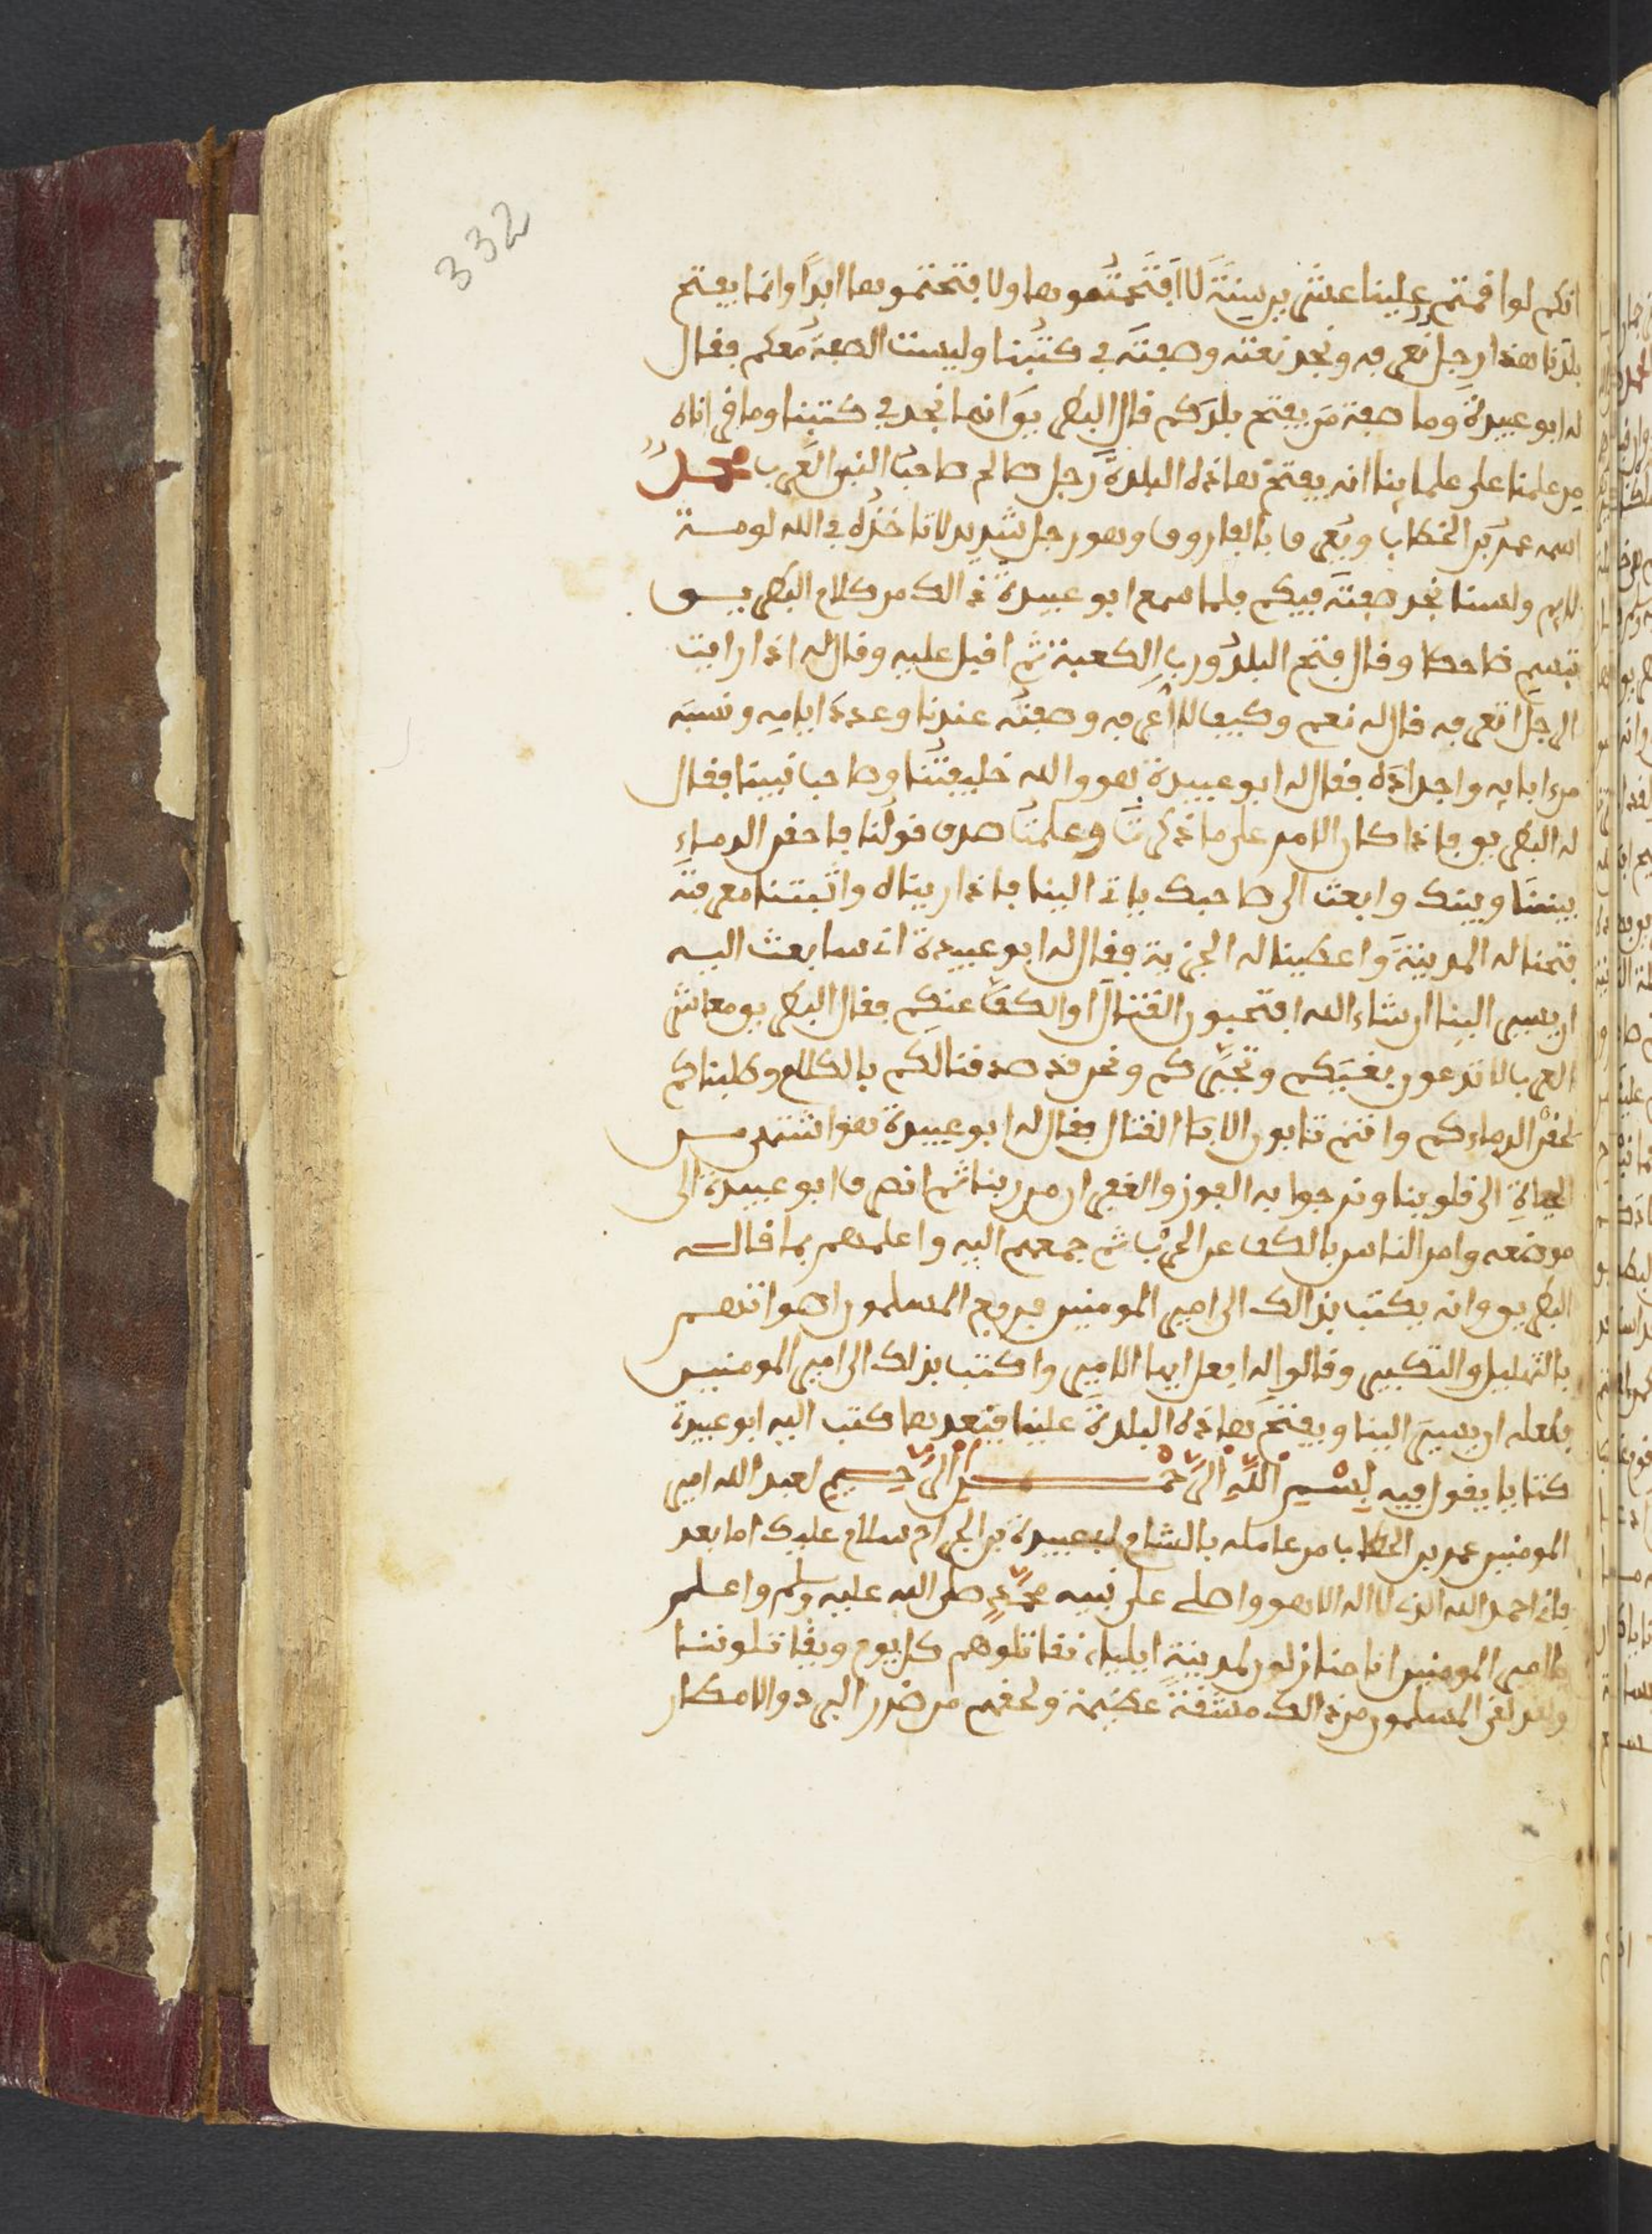 332
انكم لو اقمتم علينا عشرين سنة لا افتتحتموها ولا فتحتموها ابدا وانما يفتح
بلدنا هذا رجل نعرفه ونجد نعته وصفته في كتبنا وليست الصفة معكم فقال
له ابو عبيدة وما صفة من يفتح بلدكم قال البطريق انما نجد في كتبنا وما قراناه
من علمنا على علماينا انه يفتح هاذه البلدة رجل صالح صاحب النبي العربي محمد
اسمه عمر بن الخطاب ويعرف بالفاروق وهو رجل شديد لا تاخذه في الله لومة
لايم ولسنا نجد صفته فيكم فلما سمع ابو عبيدة ذالك من كلام البطريق
تبسم ضاحكا وقال فتح البلد ورب الكعبة ثم اقبل عليه وقال له اذا رايت
الرجل اتعرفه قال له نعم وكيف لا اعرفه وصفته عندنا وعدة ايامه ونسبه
من ءابايه واجداده فقال له ابو عبيدة هو والله خليفتنا وصاحب نبينا فقال
له البطريق فاذا كان الامر على ما ذكرت وعلمت صدق قولنا فاحقن الدماء
بيننا وبينك وابعث الى صاحبك ياتي الينا فاذا ريناه واثبتنا معرفته
فتحنا له المدينة واعطينا له الجزية فقال له ابو عبيدة انى سابعث اليه
ان يسير الينا ان شاء الله افتحبون القتال او الكف عنكم فقال البطريق معاشر
العرب الا تدعون بغيكم وتجبركم ونحن قد صدقنا لكم بالكلام وطلبناكم
لحقن الدماءكم وانتم تابون الا القتال فقال له ابو عبيدة هو اشهى من
الحياة الى قلوبنا ونرجوا به الفوز والغفران من ربنا ثم انصرف ابو عبيدة الى
موضعه وامر الناس بالكف عن الحرب ثم جمعهم اليه واعلمهم بما قال له
البطريق وانه يكتب بذالك الى امير المومنين فرفع المسلمون اصواتهم
بالتهليل والتكبير وقالوا له افعل ايها الامير واكتب بذلك الى امير المومنين
فلعله ان يسير الينا ويفتح هاذه البلدة علينا فعندها كتب اليه ابو عبيدة
كتابا يقول فيه بسم الله الرحمن الرحيم لعبد الله امير
المومنين عمر بن الخطاب من عامله بالشام ابو عبيدة بن الجراح سلام عليك اما بعد
فاني احمد الله الذي لا اله الا هو واصلي على نبيه محمد صلى الله عليه وسلم واعلم
يا امير المومنين انا منازلون لمدينة ايلياء نقاتلوهم كل يوم ويقاتلوننا
ولقد لقى المسلمون من ذالك مشقة عظيمة ولحقهم من ضرر البرد والامطار